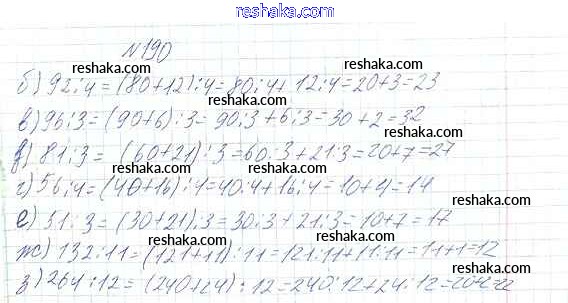 www.reshaka.com
№190
reshaka.com reshaka.com
б) 92:4=(80+12):4=80:4+12:4=20+3=23
reshaka.com reshaka.com
в) 96:3=(90+6):3=90:3+6:3=30+2=32
reshaka.com reshaka.com
в) 81:3= (60+21):3=60:3+21:3=20+7=27
reshaka.com reshaka.com
г) 56:4=(40+16):4=40:4+16:4=10+4=14
reshaka.com reshaka.com
е) 51:3=(30+21):3=30:3+21:3=10+7=17
reshaka.com reshaka.com
ж) 132:11=(121+11):11=121:11+11:11=11+1=12
reshaka.com reshaka.com
з) 264:12=(240+24):12=240:12+24:12=20+2=22